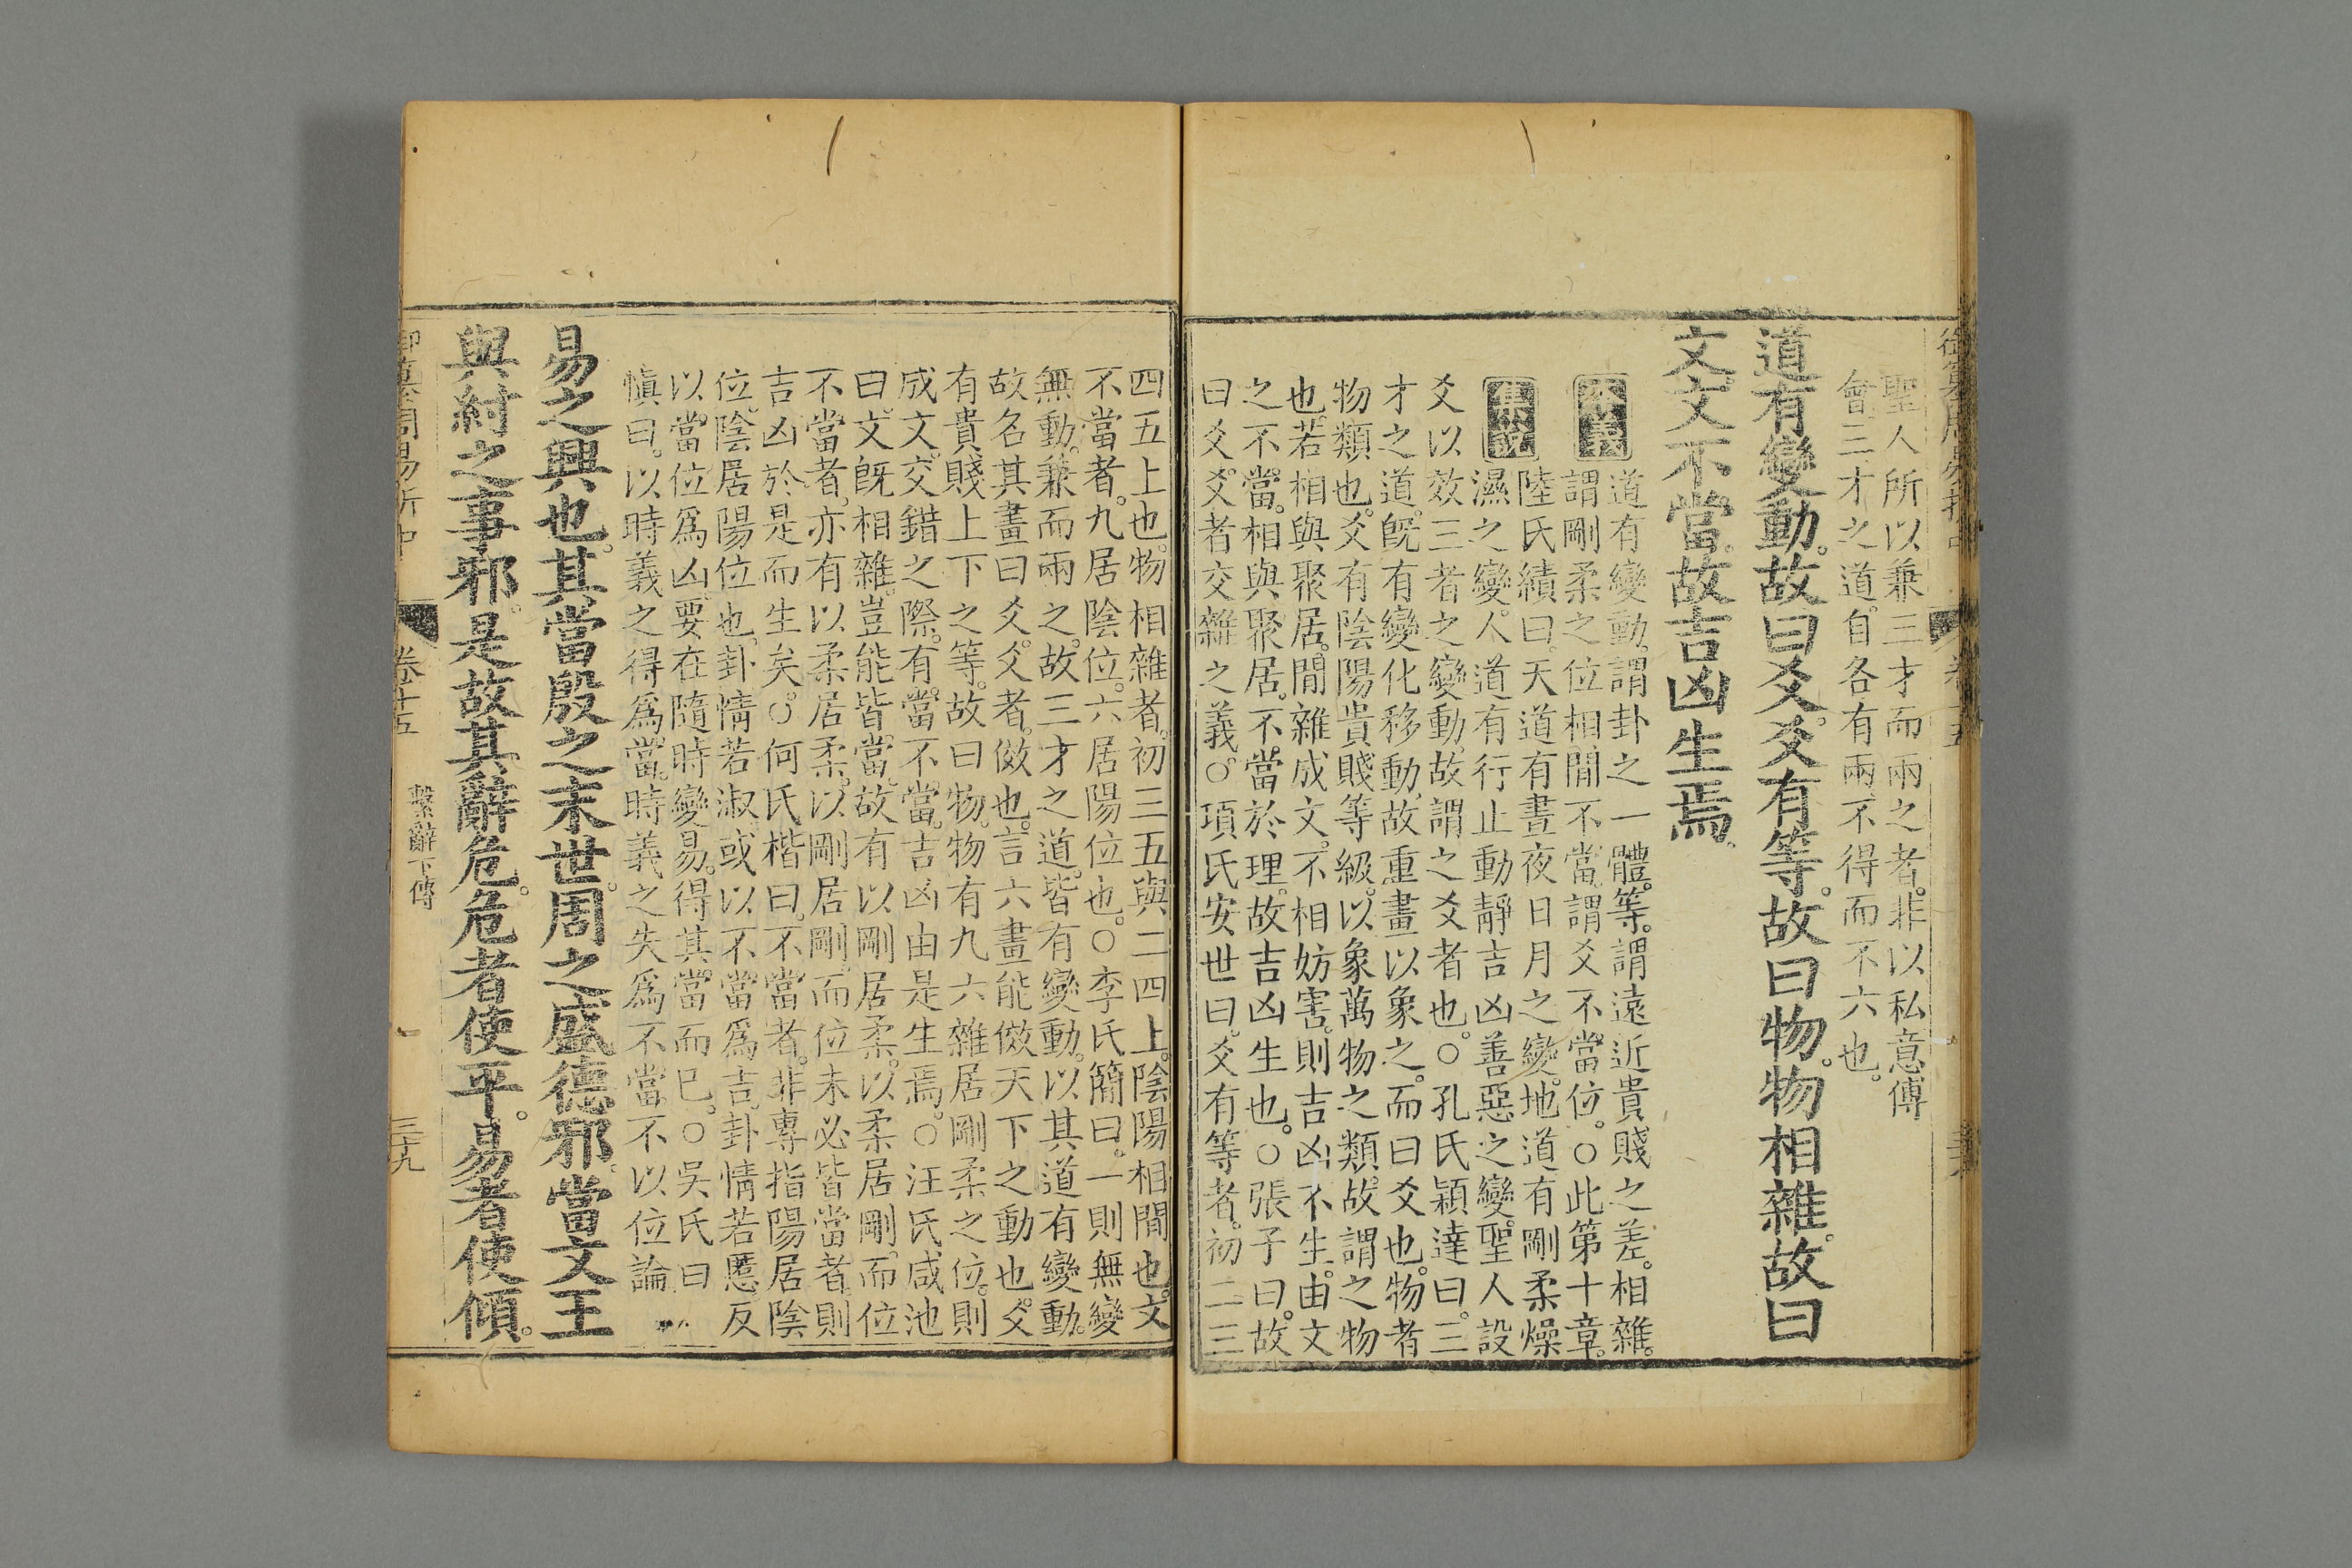 聖人所以兼三才而兩之者。非以私意傅
會。三才之道。自各有兩。不得而不六也。
道有變動。故曰爻。爻有等。故曰物。物相雜。故曰
文。文不當。故吉凶生焉。
本義
道有變動。謂卦之一體。等。謂遠近貴賤之差。相雜。
謂剛柔之位相閒。不當。謂爻不當位。○此第十章。
集說
陸氏績曰。天道有晝夜日月之變。地道有剛柔燥
濕之變。人道有行止動靜吉凶善惡之變。聖人設
爻以效三者之變動。故謂之爻者也。○孔氏穎達曰。三
才之道。既有變化移動。故重畫以象之。而曰爻也。物者
物類也。爻有陰陽貴賤等級。以象萬物之類。故謂之物
也。若相與聚居。閒雜成文。不相妨害。則吉凶不生。由文
之不當。相與聚居。不當於理。故吉凶生也。○張子曰。故
曰爻。爻者交雜之義。○項氏安世曰。爻有等者。初二三
四五上也。物相雜者。初三五與二四上。陰陽相閒也。文
不當者。九居陰位。六居陽位也。○李氏簡曰。一則無變
無動。兼而兩之。故三才之道。皆有變動。以其道有變動。
故名其畫曰爻。爻者。傚也。言六畫能傚天下之動也。爻
有貴賤上下之等。故曰物。物有九六雜居剛柔之位。則
成文。交錯之際。有當不當。吉凶由是生焉。○汪氏咸池
曰。文既相雜。豈能皆當。故有以剛居柔。以柔居剛。而位
不當者。亦有以柔居柔。以剛居剛。而位未必皆當者。則
吉凶於是而生矣。○何氏楷曰。不當者。非專指陽居陰
位。陰居陽位也。卦情若淑。或以不當爲吉。卦情若慝。反
以當位爲凶。要在隨時變易。得其當而已。○吳氏曰
愼曰。以時義之得爲當。時義之失爲不當。不以位論
易之興也。其當殷之末世。周之盛德邪。當文王
與紂之事邪。是故其辭危。危者使平。易者使傾。
御纂周易折中
卷十五
繫辭下傳
三十九